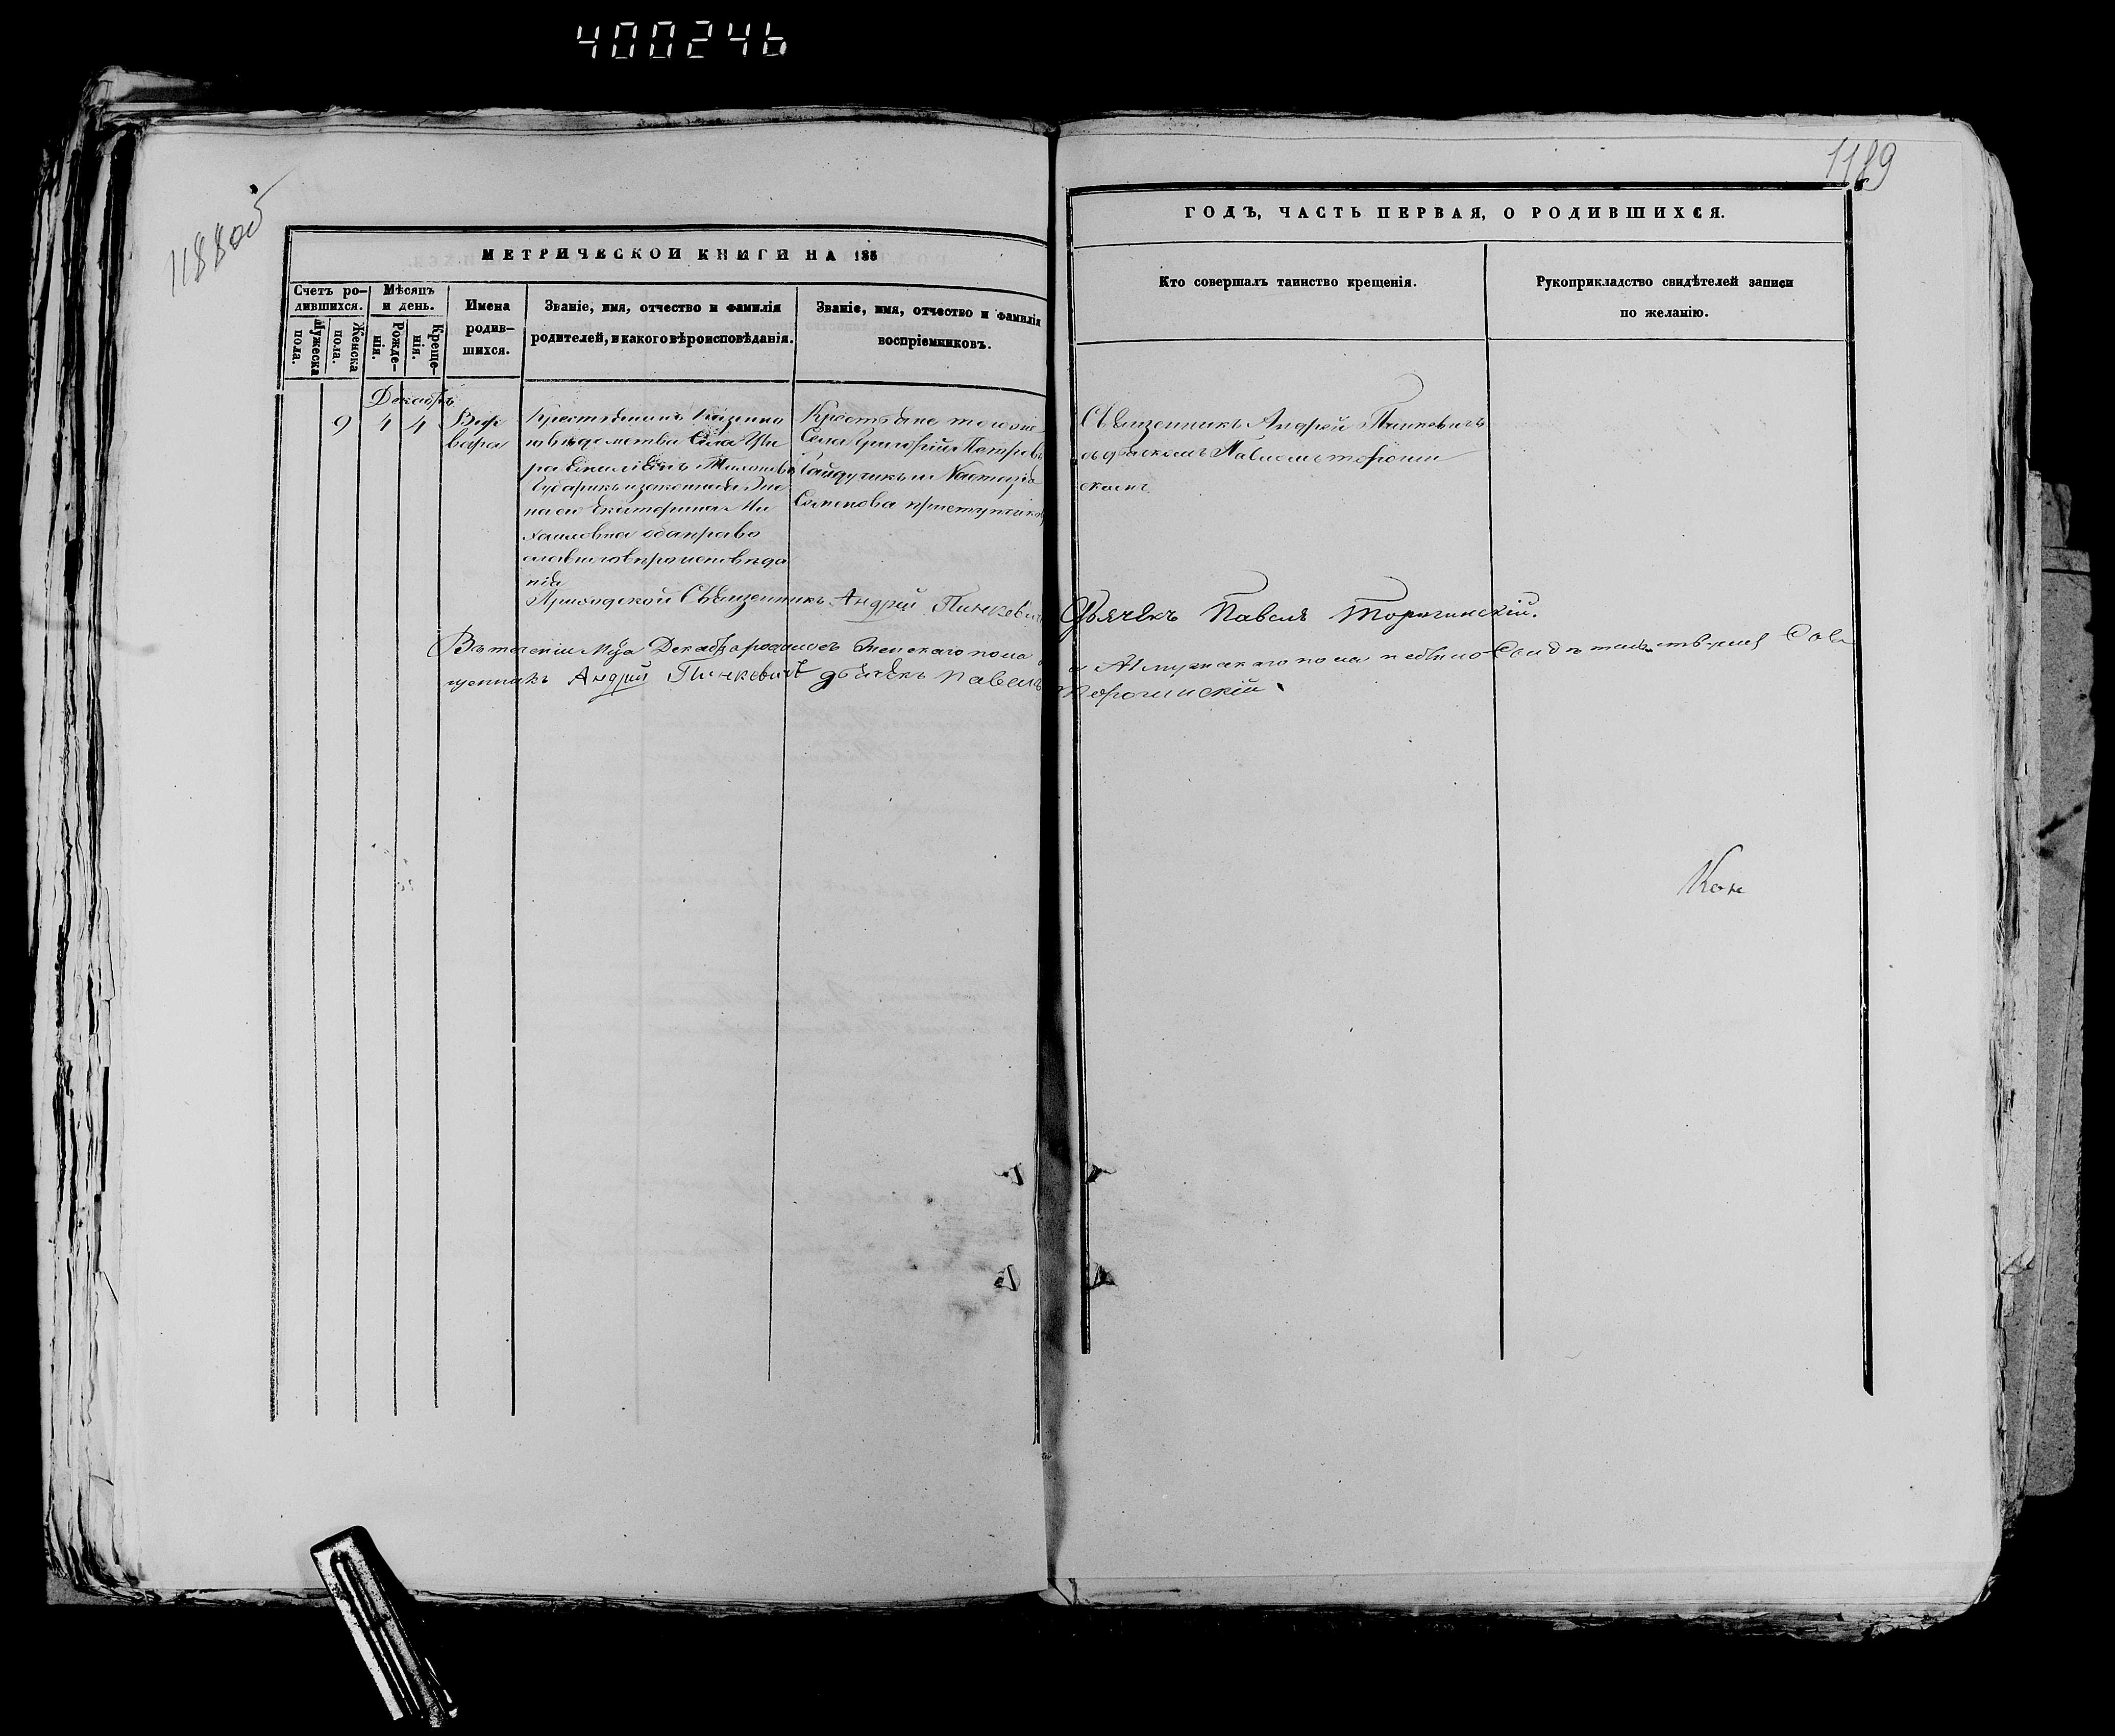 400246
1188 об
1189
МЕТРИЧЕСКОЙ КНИГИ НА 185
ГОДЪ, ЧАСТЬ ПЕРВАЯ, О РОДИВШИХСЯ.
Счетъ ро-
дившихся.
Мужеска
пола.
Женска
пола.
Мѣсяцъ
и день.
Рожде-
нія.
Креще-
нія.
Имена
родив-
шихся.
Званіе, имя, отчество и фамилія
родителей, и какого вѣроисповѣданія.
Званіе, имя, отчество и фамилія
воспріемниковъ.
Кто совершалъ таинство крещенія.
Рукоприкладство свидѣтелей записи
по желанію.
Декабрь
9 4 4
Вар
вара
Крестьянинъ Казенна
го вѣдомства Села
законная Же
на его Екатерина Ми
хаиловна оба право
славнаго вѣроисповѣда
нія
Крестьяне того же
Села Григорій Петровъ
и Настасія
Семенова
Священникъ Андрей Пинкевичъ
съ дьячкомъ Павломъ Торогин
скимъ
Приходской Священникъ Андрей Пинкевичъ Дьячекъ Павелъ Торогинскій.
Въ теченіи Мца Декабря родилось Женскаго пола а Мужескаго пола небыло Свидѣтельствуемъ Свя
щенникъ Андрей Пинкевичъ дьячекъ Павелъ Торогинскій
Кон